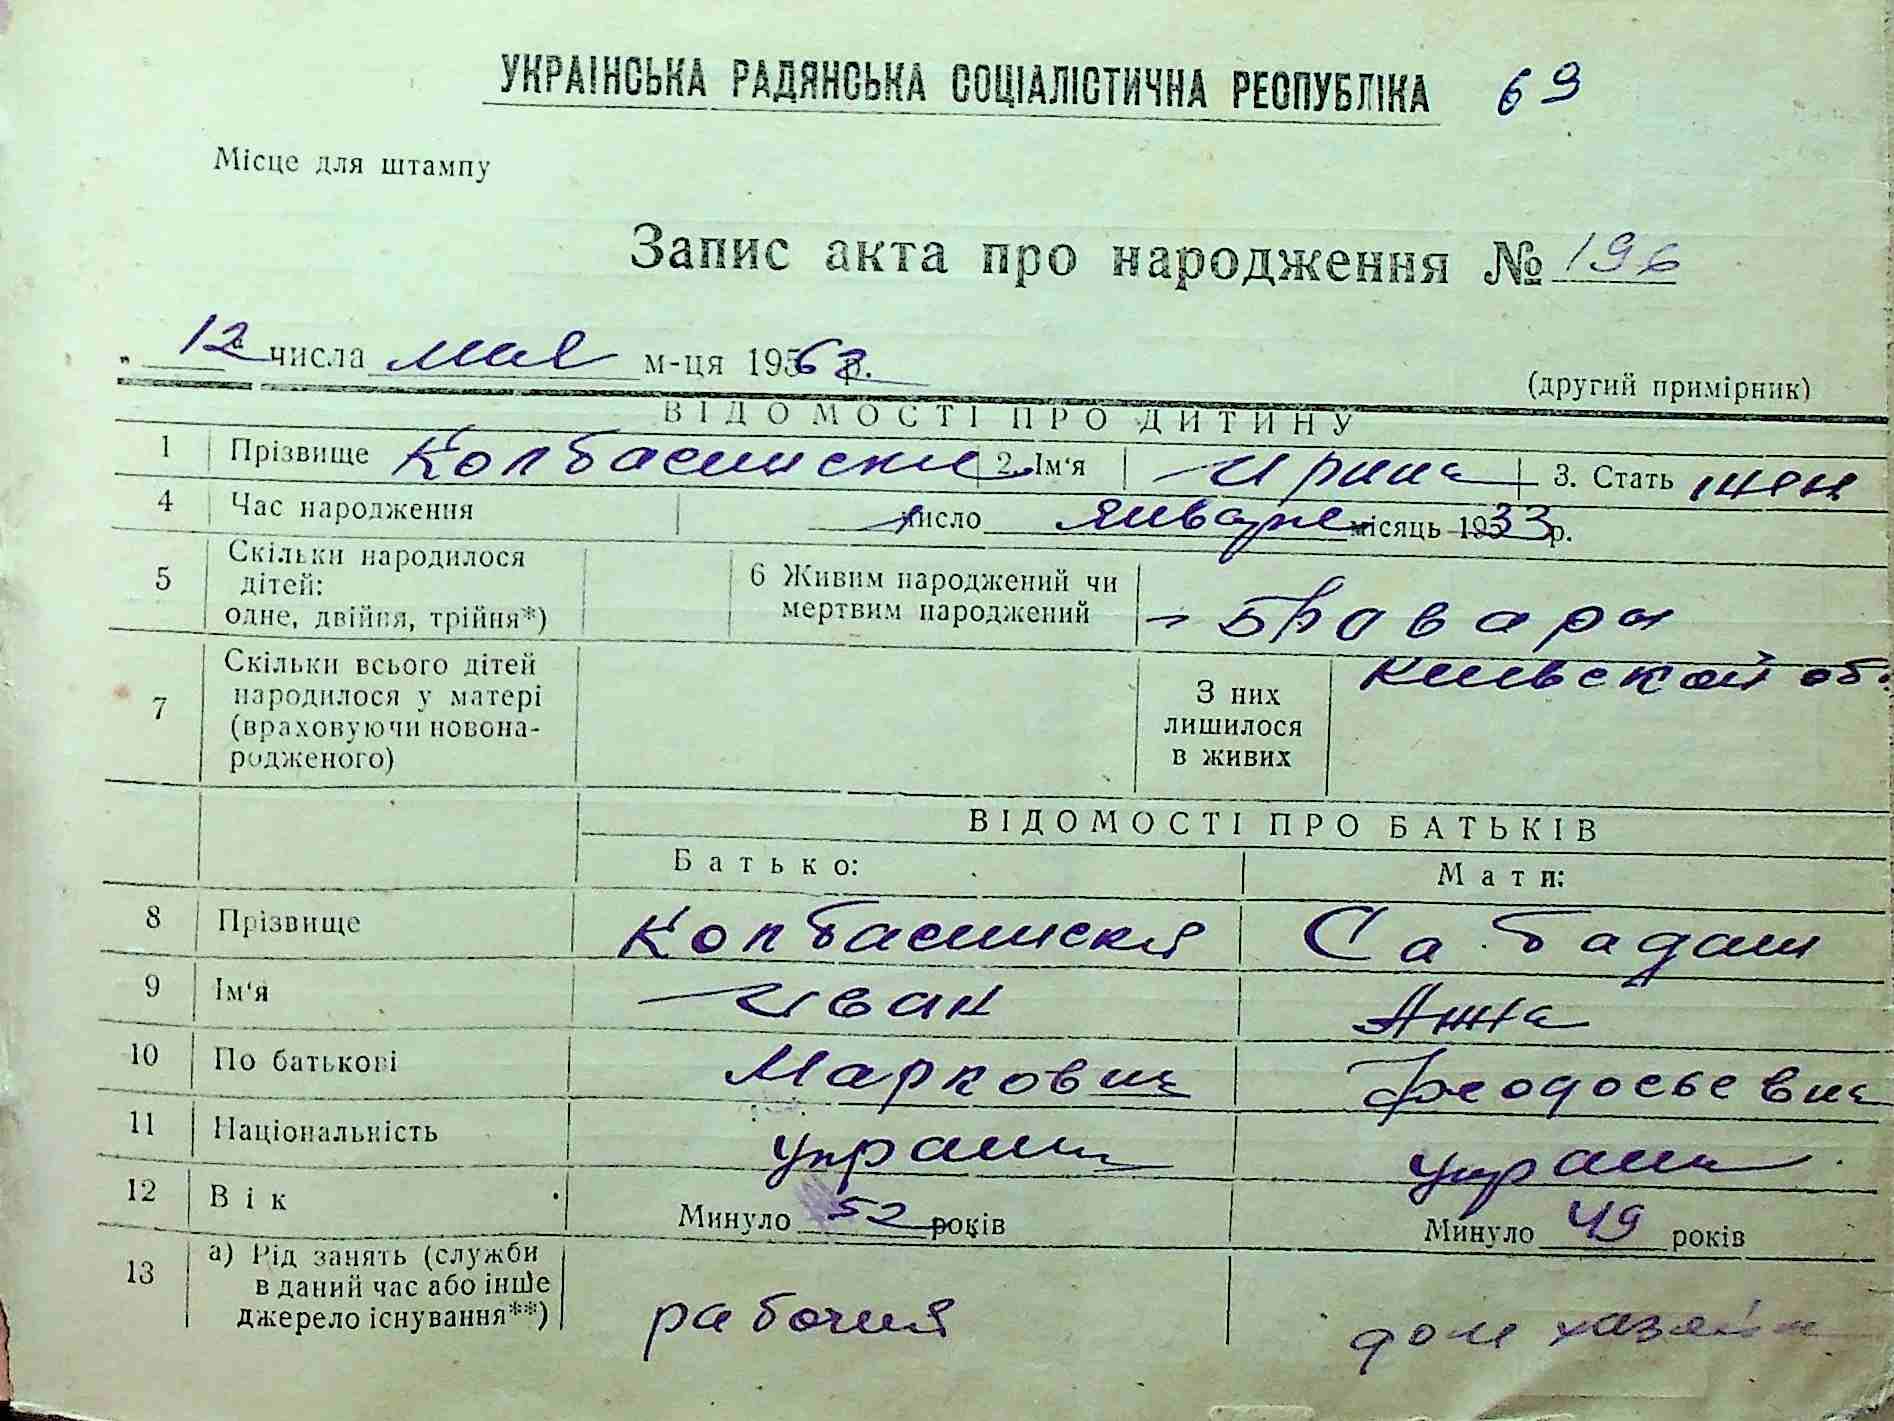 УКРАЇНСЬКА РАДЯНСЬКА СОЦІАЛІСТИЧНА РЕСПУБЛІКА 69
Місце для штампу
Запис акта про народження № 196
„ 12 числа мая м-ця 195 63 р.
(другий примірник)
ВІДОМОСТІ ПРО ДИТИНУ
1 Прізвище 2. Ім'я Ирина 3. Стать жен
4 Час народження число января місяць 195 33 р.
5 Скільки народилося дітей: одне, двійня, трійня*) 6 Живим народжений чи мертвим народжений - Бровары
Киевской об.
7 Скільки всього дітей народилося у матері (враховуючи новонародженого) З них лишилося в живих
ВІДОМОСТІ ПРО БАТЬКІВ
Батько: Мати:
8 Прізвище Колбасинский Сабадаш
9 Ім'я Иван Анна
10 По батькові Маркович Феодосьевна
11 Національність украин украин
12 Вік Минуло 52 років Минуло 49 років
13 а) Рід занять (служби в даний час або інше джерело існування**) рабочий дом хазяйка